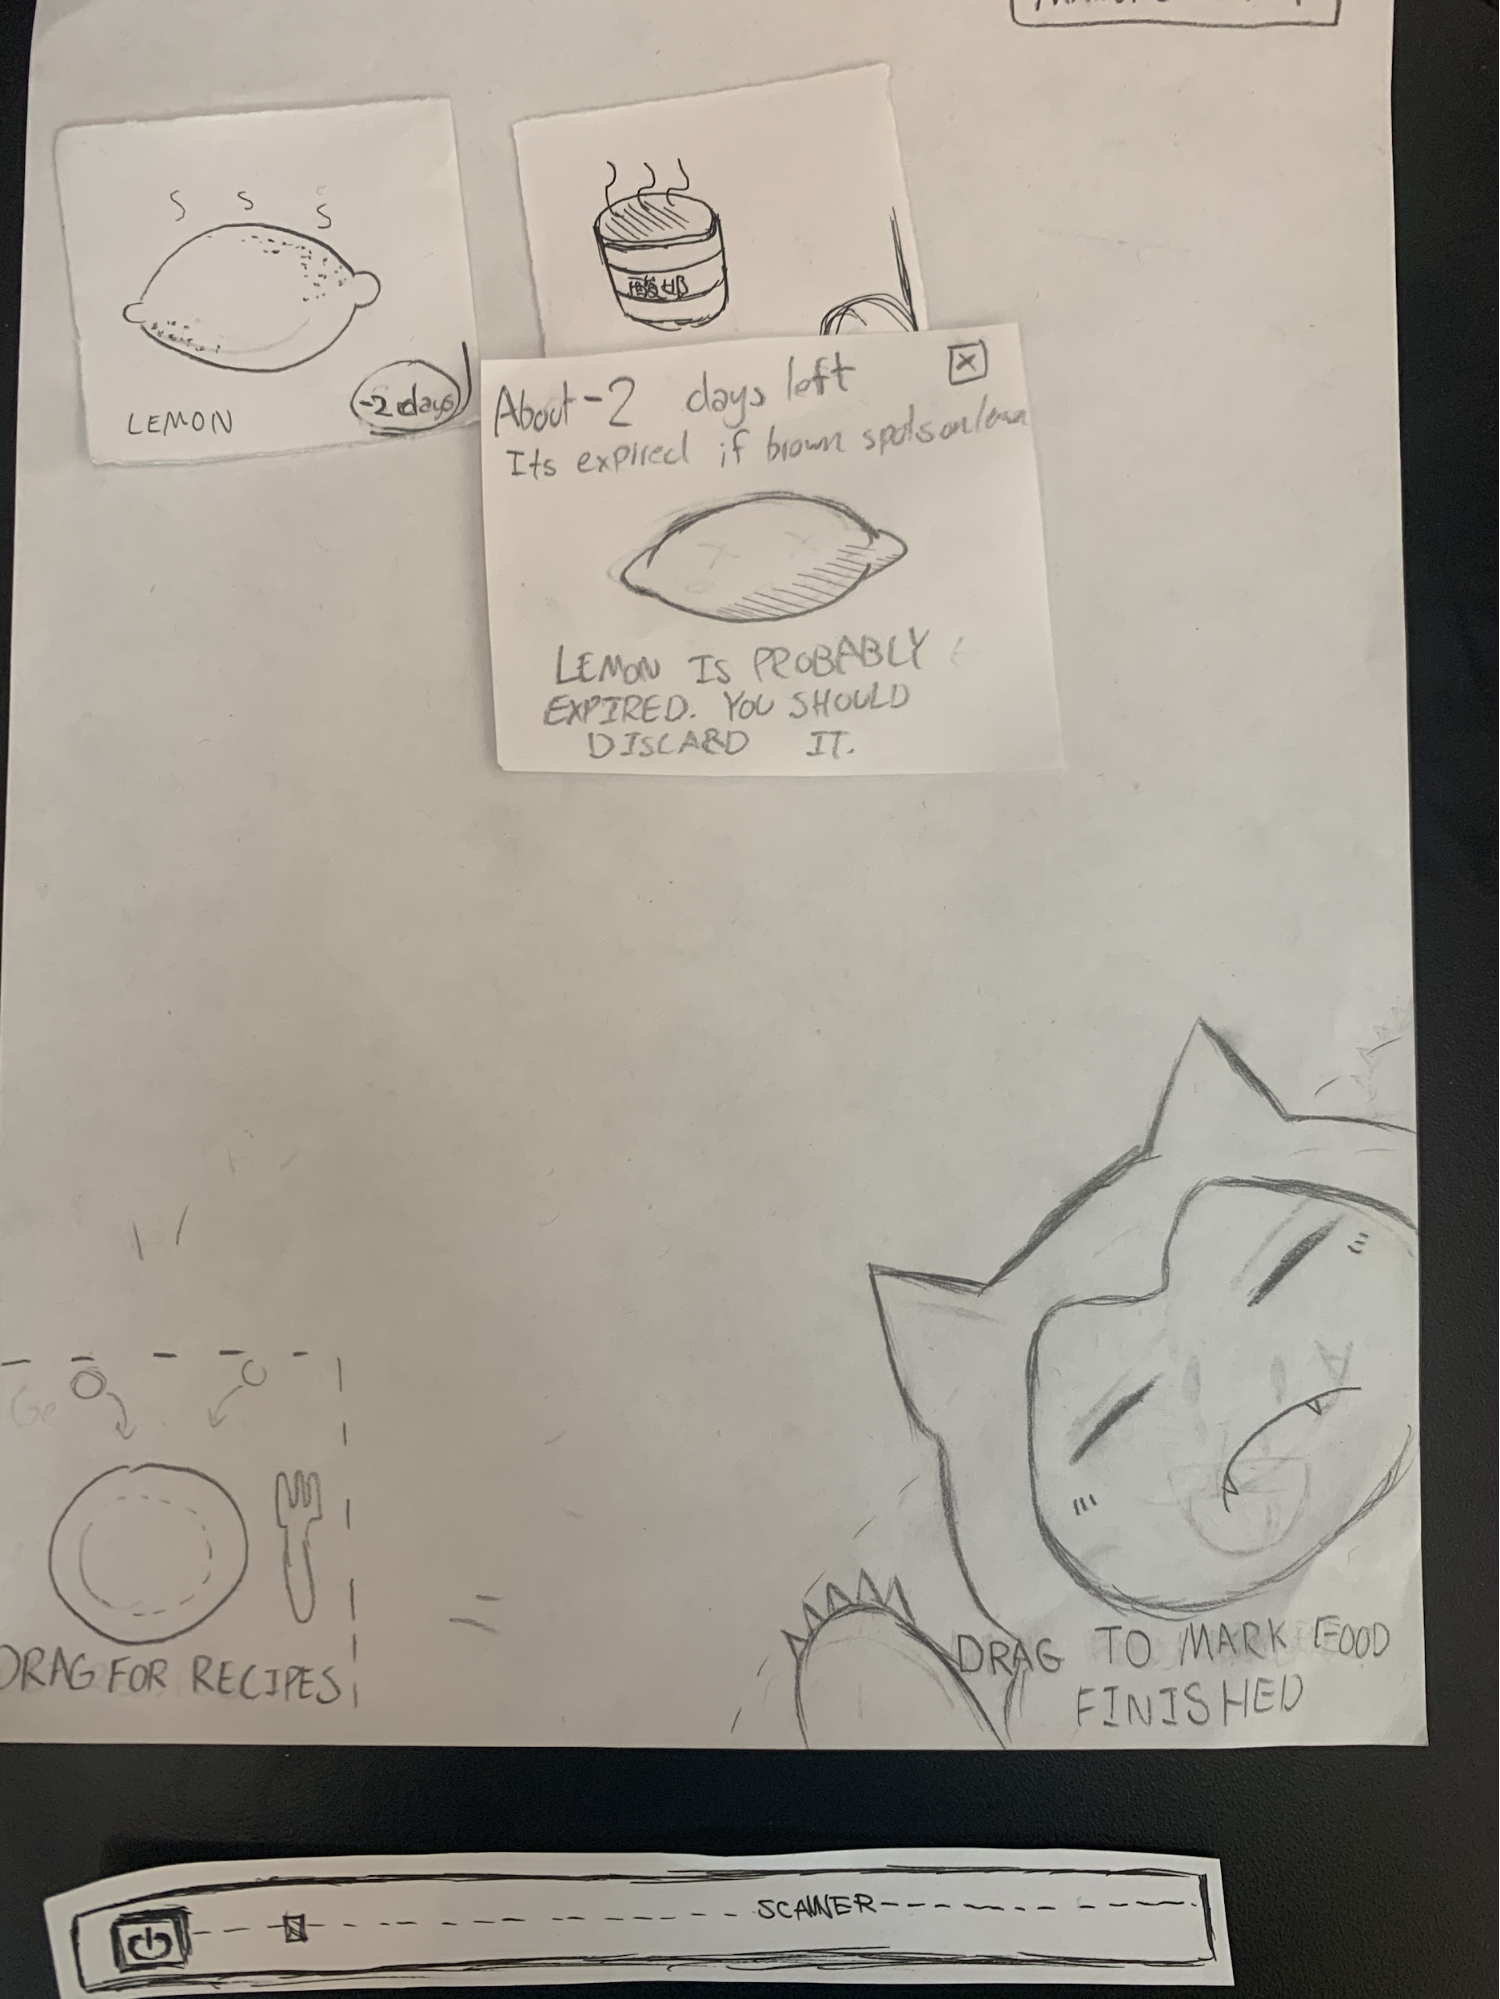 LEMON
-2 days
酸奶
About -2 days left
Its expired if brown spots on lemon
LEMON IS PROBABLY
EXPIRED. YOU SHOULD
DISCARD IT.
DRAG FOR RECIPES
DRAG TO MARK FOOD
FINISHED
SCANNER